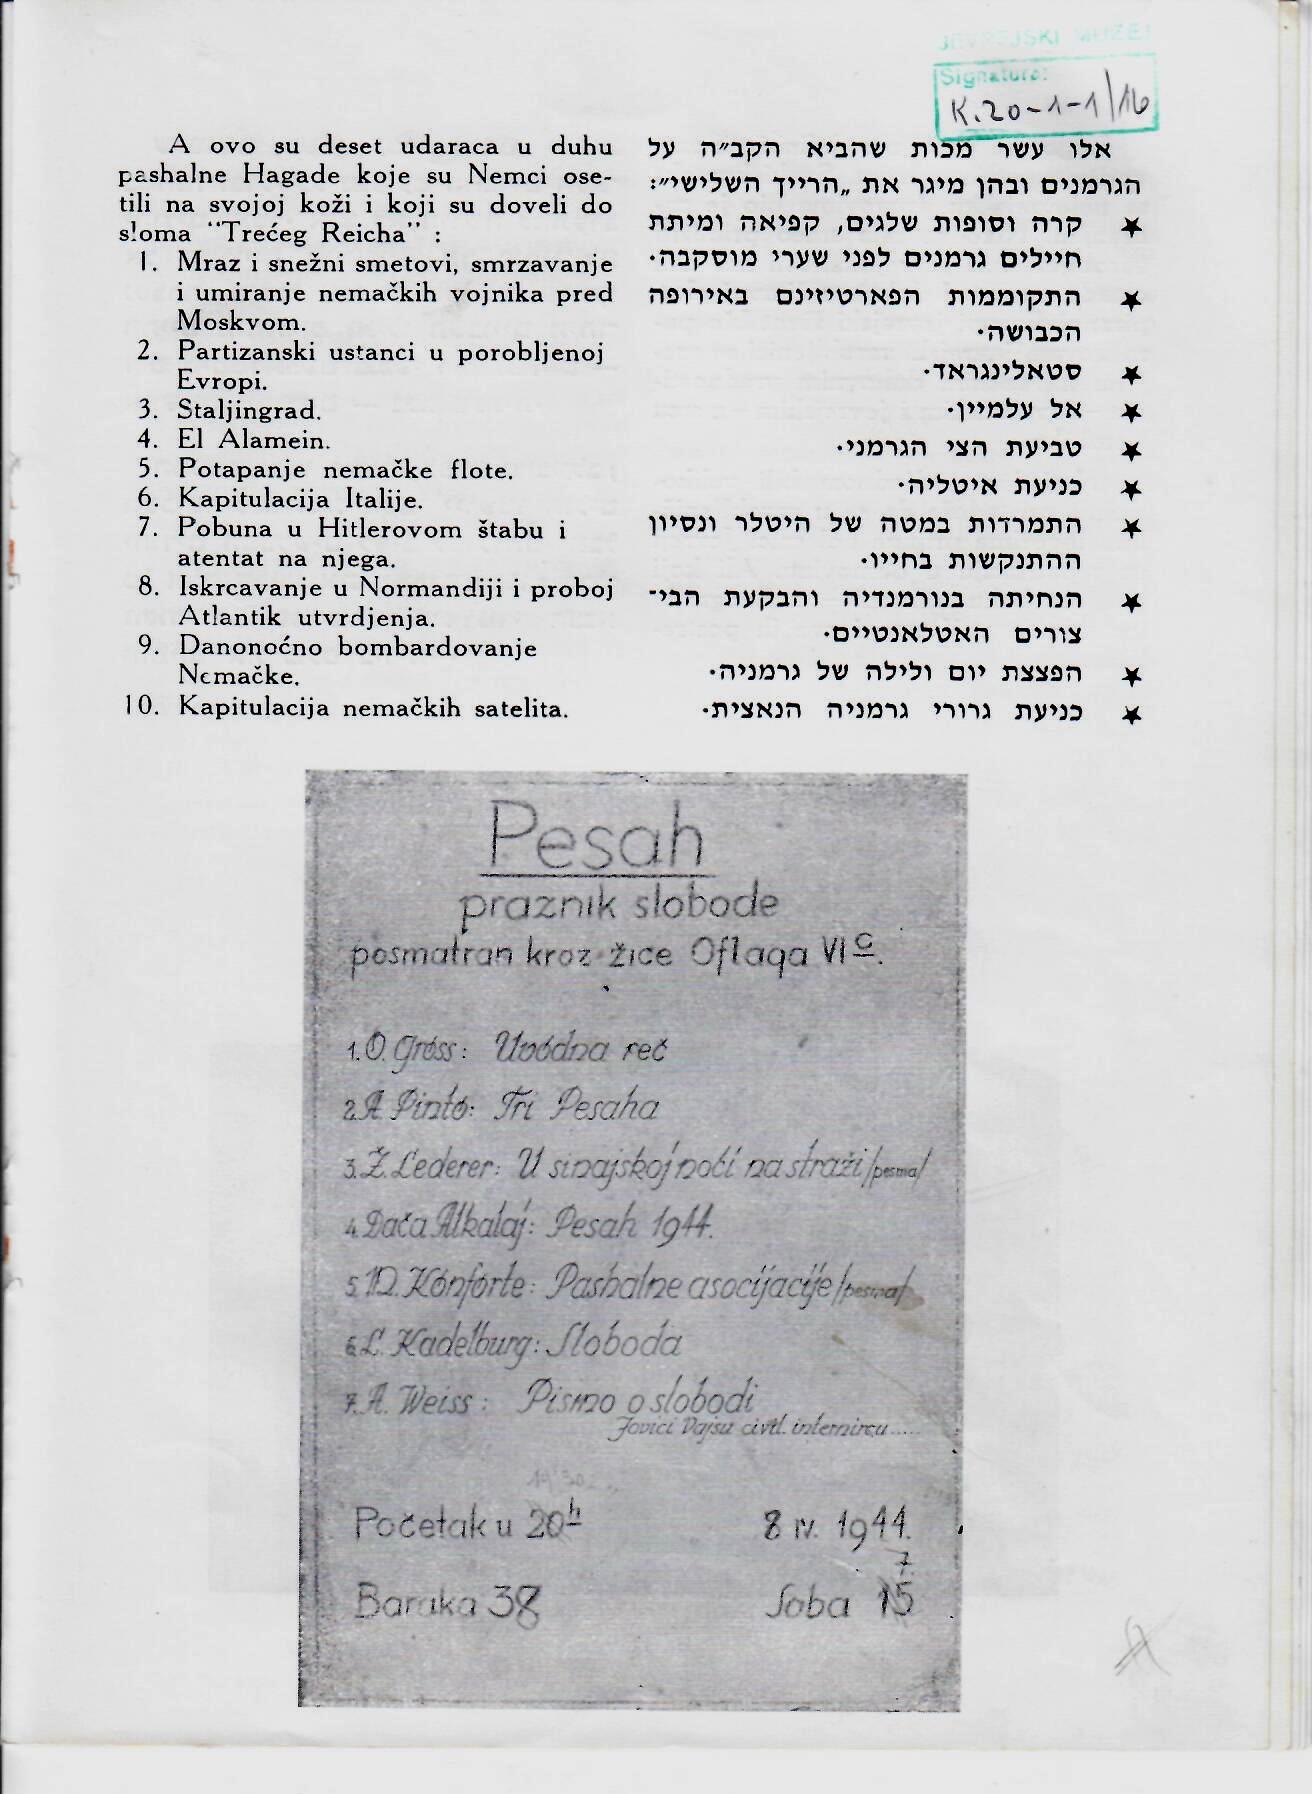 JEVREJSKI MUZEJ
Signatura:
K.20-1-1/16
A ovo su deset udaraca u duhu
pashalne Hagade koje su Nemci ose-
tili na svojoj koži i koji su doveli do
sloma "Trećeg Reicha" :
1. Mraz i snežni smetovi, smrzavanje
i umiranje nemačkih vojnika pred
Moskvom.
2. Partizanski ustanci u porobljenoj
Evropi.
3. Staljingrad.
4. El Alamein.
5. Potapanje nemačke flote.
6. Kapitulacija Italije.
7. Pobuna u Hitlerovom štabu i
atentat na njega.
8. Iskrcavanje u Normandiji i proboj
Atlantik utvrdjenja.
9. Danonoćno bombardovanje
Nemačke.
10. Kapitulacija nemačkih satelita.
אלו עשר מכות שהביא הקב״ה על
הגרמנים ובהן מיגר את „הרייך השלישי״:
★ קרה וסופות שלגים, קפיאה ומיתת
חיילים גרמנים לפני שערי מוסקבה.
★ התקוממות הפארטיזינם באירופה
הכבושה.
★ סטאלינגראד.
★ אל עלמיין.
★ טביעת הצי הגרמני.
★ כניעת איטליה.
★ התמרדות במטה של היטלר ונסיון
ההתנקשות בחייו.
★ הנחיתה בנורמנדיה והבקעת הבי-
צורים האטלאנטיים.
★ הפצצת יום ולילה של גרמניה.
★ כניעת גרורי גרמניה הנאצית.
Pesah
praznik slobode
posmatran kroz žice Oflaga VI C.
1. O. Gross: Uvodna reč
2. A. Pinto: Tri Pesaha
3. Ž. Lederer: U sinajskoj noći na straži /pesma/
4. Dača Alkalaj: Pesah 1944.
5. M. Konforte: Pashalne asocijacije /pesma/
6. L. Kadelburg: Sloboda
7. A. Weiss: Pismo o slobodi
Jovici Vajsu civil. intemircu.....
Početak u 20h 8 IV. 1944.
7.
Baraka 38 Soba 15